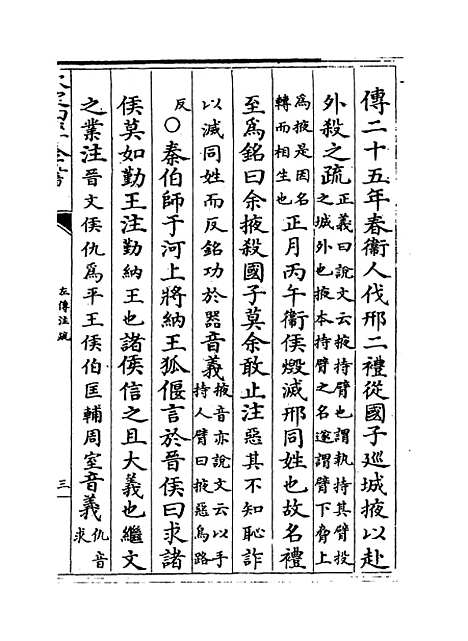 傳二十五年春衛人伐邢二禮從國子巡城掖以赴
外殺之疏正義曰說文云掖持臂也謂執持其臂投
之城外也掖本持臂之名遂謂臂下脅上
為掖是因名
轉而相生也
正月丙午衛侯燬滅邢同姓也故名禮
至為銘曰余掖殺國子莫余敢止注惡其不知恥詐
以滅同姓而反銘功於器音義掖音亦說文云以手
持人臂曰掖惡烏路
反○秦伯師于河上將納王狐偃言於晉侯曰求諸
侯莫如勤王注勤納王也諸侯信之且大義也繼文
之業注晉文侯仇為平王侯伯匡輔周室音義仇音
求
左傳注疏
三